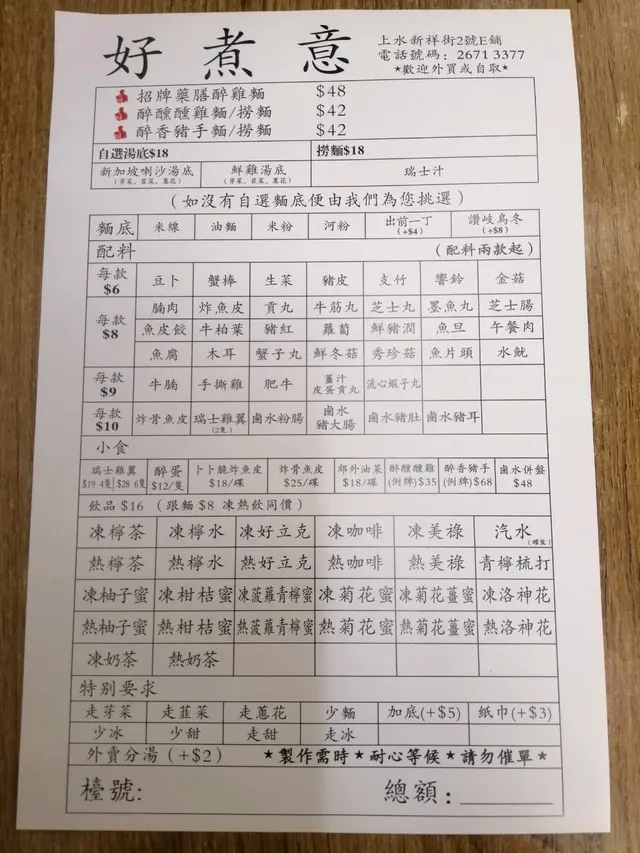 好煮意
上水新祥街2號E舖
電話號碼: 2671 3377
★歡迎外買或自取★
招牌藥膳醉雞麵 $48
醉醺醺雞麵/撈麵 $42
醉香豬手麵/撈麵 $42
自選湯底$18 撈麵$18
新加坡喇沙湯底 鮮雞湯底 瑞士汁
(芽菜, 韮菜, 蔥花) (芽菜, 韮菜, 蔥花)
(如沒有自選麵底便由我們為您挑選)
麵底 米線 油麵 米粉 河粉 出前一丁 (+$4) 讚岐烏冬 (+$8)
配料 (配料兩款起)
每款 $6 豆卜 蟹棒 生菜 豬皮 支竹 響鈴 金菇
每款 $8 腩肉 炸魚皮 貢丸 牛筋丸 芝士丸 墨魚丸 芝士腸
魚皮餃 牛柏葉 豬紅 蘿蔔 鮮豬潤 魚旦 午餐肉
魚腐 木耳 蟹子丸 鮮冬菇 秀珍菇 魚片頭 水魷
每款 $9 牛腩 手撕雞 肥牛 薑汁皮蛋貢丸 流心蝦子丸
每款 $10 炸骨魚皮 瑞士雞翼 (2隻) 鹵水粉腸 鹵水豬大腸 鹵水豬肚 鹵水豬耳
小食
瑞士雞翼 醉蛋 卜卜脆炸魚皮 炸骨魚皮 郊外油菜 醉醺醺雞 醉香豬手 鹵水併盤
$19 4隻 $28 6隻 $12/隻 $18/碟 $25/碟 $18/碟 (例牌)$35 (例牌)$68 $48
飲品 $16 (跟麵 $8 凍熱飲同價)
凍檸茶 凍檸水 凍好立克 凍咖啡 凍美祿 汽水 (罐裝)
熱檸茶 熱檸水 熱好立克 熱咖啡 熱美祿 青檸梳打
凍柚子蜜 凍柑桔蜜 凍菠蘿青檸蜜 凍菊花蜜 凍菊花薑蜜 凍洛神花
熱柚子蜜 熱柑桔蜜 熱菠蘿青檸蜜 熱菊花蜜 熱菊花薑蜜 熱洛神花
凍奶茶 熱奶茶
特別要求
走芽菜 走韮菜 走蔥花 少麵 加底(+$5) 紙巾(+$3)
少冰 少甜 走甜 走冰
外賣分湯 (+$2) ★製作需時★耐心等候★請勿催單★
檯號: 總額: